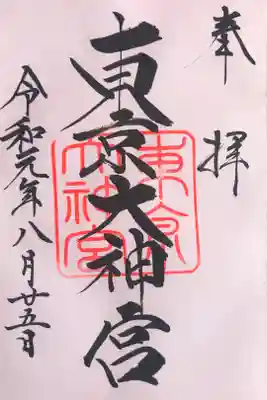 奉拝
東京大神宮
令和元年八月廿五日
東京
大神宮